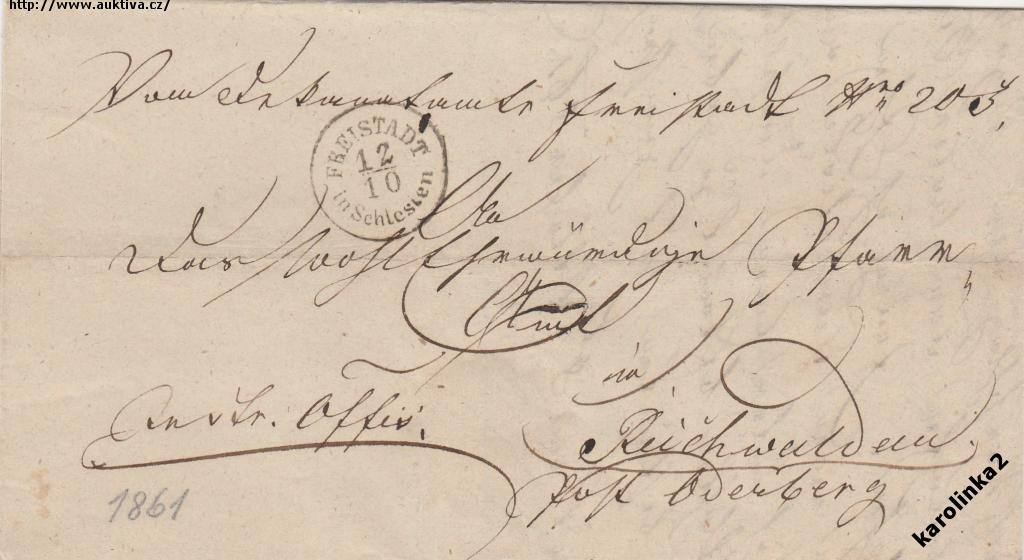 http://www.auktiva.cz/
Vom Dekanatamte Freistadt Nro 203,
FREISTADT
12
10
in Schlesien
An
das wohlEhrwürdige Pfarr
Amt
in
Reichwaldau
Post Oderberg
Offis.
1861
karolinka2